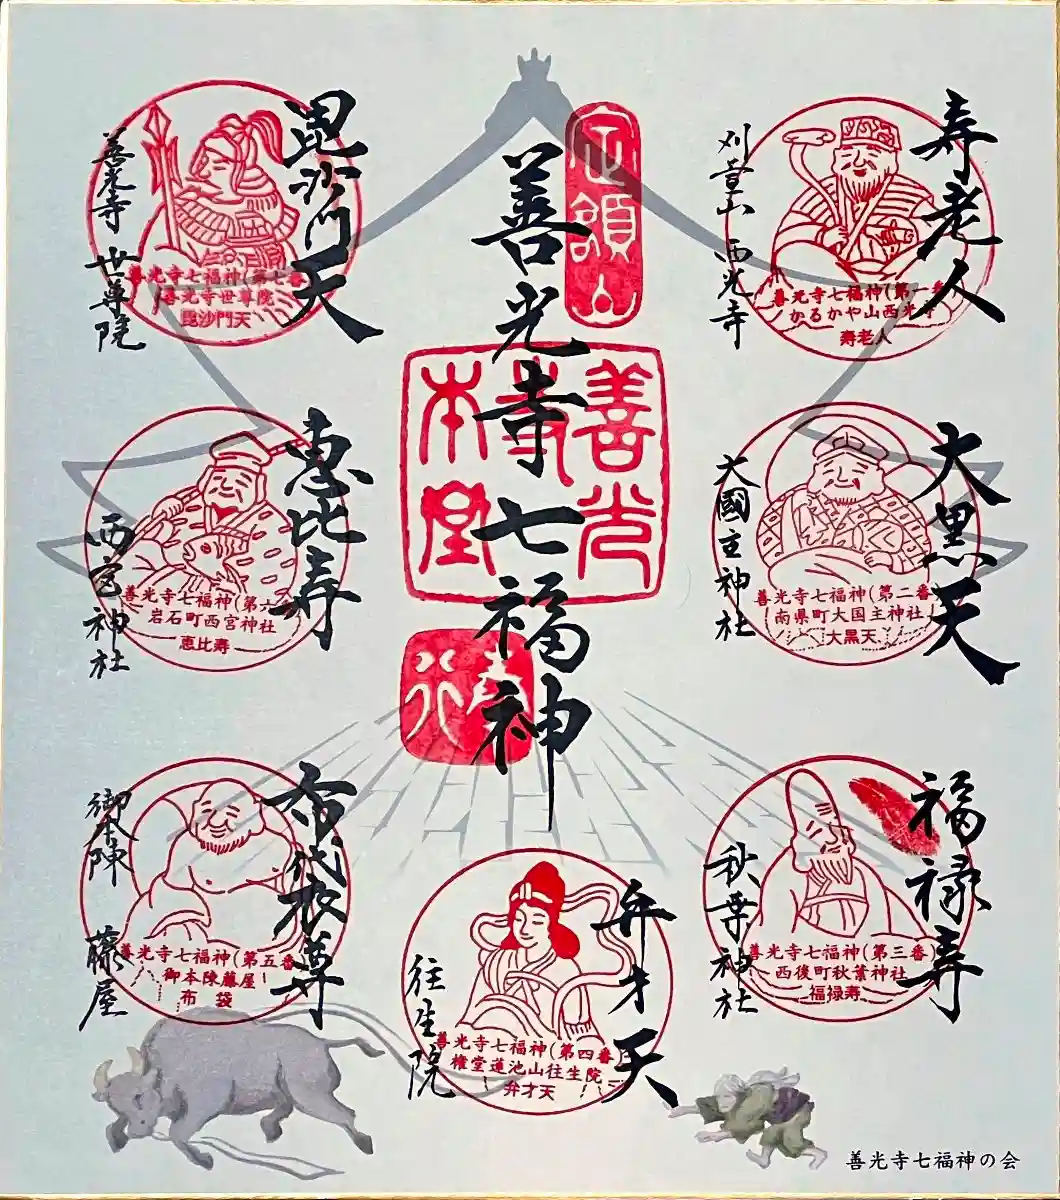 寿老人
刈萱山 西光寺
善光寺七福神(第一番
かるかや山西光寺
寿老人
大黒天
大國主神社
善光寺七福神(第二番
南県町大国主神社
大黒天
福禄寿
秋葉神社
善光寺七福神(第三番)
西後町秋葉神社
福禄寿
定額山
善光寺七福神
善光寺本堂
弁才天
往生院
善光寺七福神(第四番)
権堂蓮池山往生院
弁才天
毘沙門天
善光寺 世尊院
善光寺七福神(第七番
善光寺世尊院
毘沙門天
恵比寿
西宮神社
善光寺七福神(第六
岩石町西宮神社
恵比寿
布袋尊
御本陣 藤屋
善光寺七福神(第五番
御本陳藤屋
布袋
善光寺七福神の会